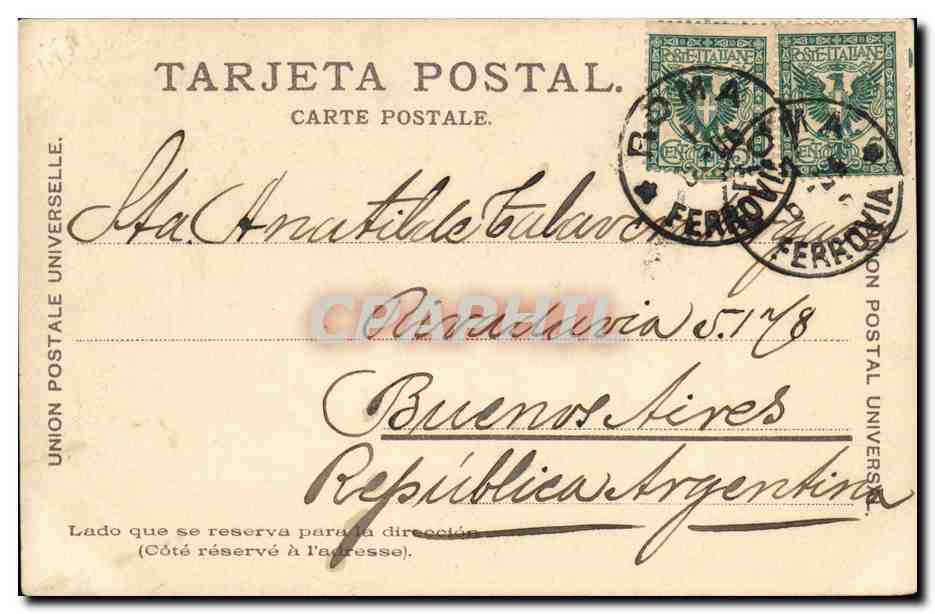 TARJETA POSTAL.
CARTE POSTALE.
POSTE·ITALIANE
POSTE·ITALIANE
ROMA
FERROVIA
ROMA
FERROVIA
UNION POSTALE UNIVERSELLE.
UNION POSTAL UNIVERSAL.
Sta. Anatilde
CPAPHIL
Rivadavia 5.178
Buenos Aires
República Argentina
Lado que se reserva para la dirección
(Côté réservé à l'adresse).